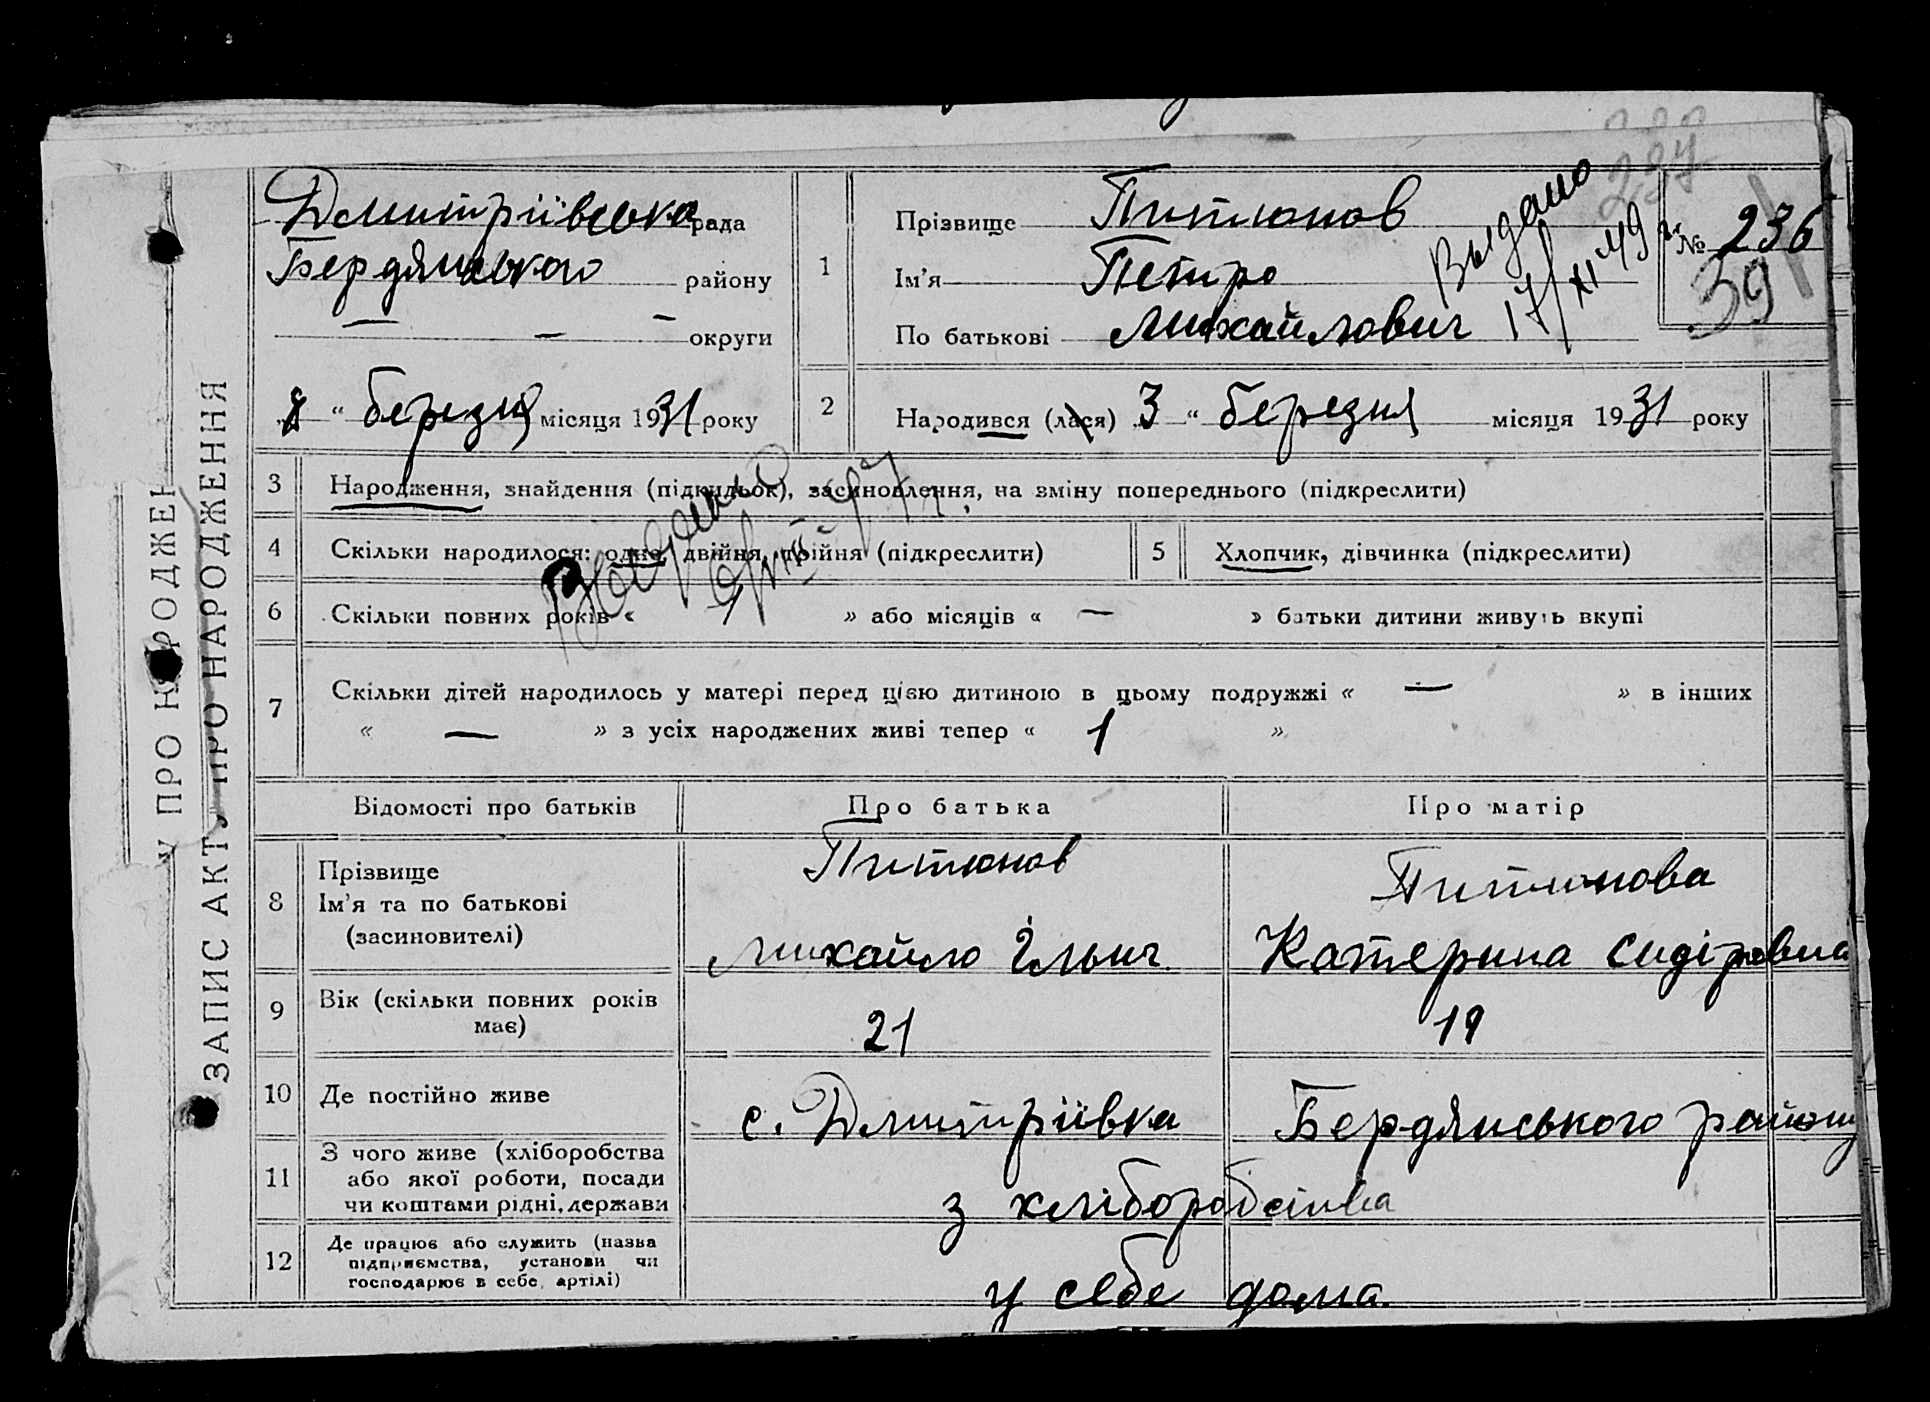 ЗАПИС АКТУ ПРО НАРОДЖЕННЯ
У ПРО НАРОДЖЕН
Дмитріївська рада
Бердянського району
— — — округи
8 " березня місяця 1931 року
1
Прізвище Питионов
Ім'я Петро
По батькові Михайлович
Выдано
17/XI 49 г.
№ 236
39
287
2 Народився (лася) 3 " березня місяця 1931 року
3 Народження, знайдення (підкидьок), засиновлення, на зміну попереднього (підкреслити)
4 Скільки народилося: одна, двійня, трійня (підкреслити)
5 Хлопчик, дівчинка (підкреслити)
6 Скільки повних років « » або місяців « — » батьки дитини живуть вкупі
7 Скільки дітей народилось у матері перед цією дитиною в цьому подружжі « — » в інших
« — » з усіх народжених живі тепер « 1 »
Відомості про батьків Про батька Про матір
8 Прізвище
Ім'я та по батькові
(засиновителі)
Питионов
Михайло Ільич
Питионова
Катерина Сидіровна
9 Вік (скільки повних років
має)
21
19
10 Де постійно живе
с. Дмитріївка Бердянського району
11 З чого живе (хліборобства
або якої роботи, посади
чи коштами рідні, держави
з хліборобства
12 Де працює або служить (назва
підприємства, установи чи
господарює в себе, артілі)
у себе дома.